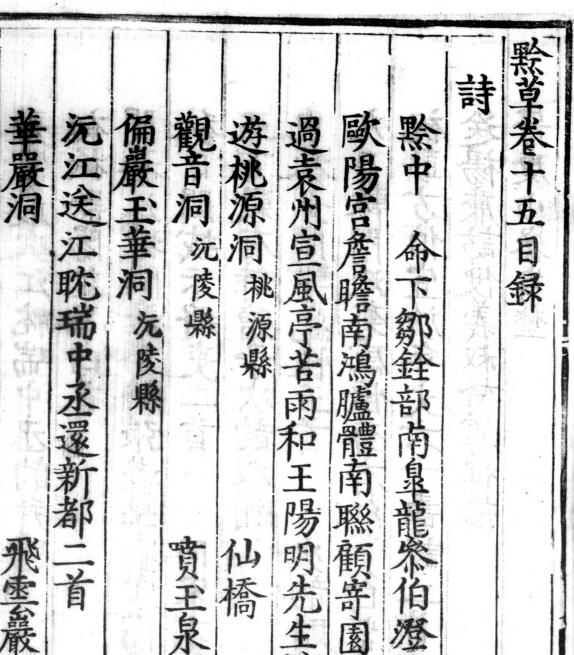 黔草卷十五目録
詩
黔中 命下鄒銓部南臯龍叅伯澄
歐陽宫詹瞻南鴻臚體南聯顧寄園
過袁州宣風亭苦雨和王陽明先生
遊桃源洞 桃源縣 仙橋
觀音洞 沅陵縣 噴玉泉
偏巖玉華洞 沅陵縣
沅江送江耽瑞中丞還新都二首
華嚴洞 飛雲巖